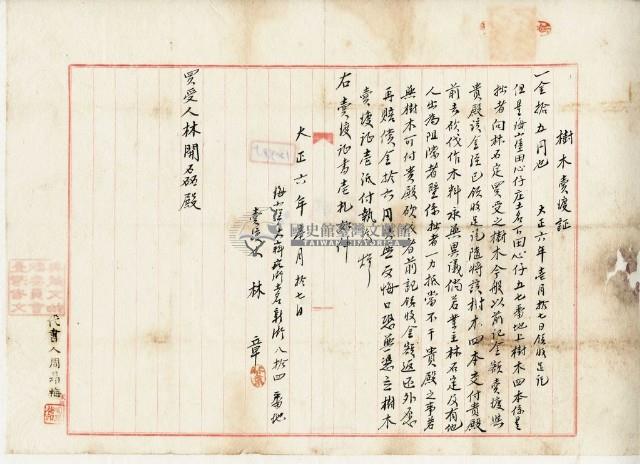 樹木賣渡証
一金拾五円也 大正六年壹月拾七日領收足訖
但是海山堡田心仔庄土名下田心仔五七番地上樹木四本係是
拙者向林石定買受之樹木今般以前記金額賣渡與
貴殿該金經已領收足訖隨將該樹木四本交付貴殿
前去砍伐作木料永無異議倘若業主林石定及有他
人出為阻當者壁係拙者一力抵當不干貴殿之事若
無樹木可付貴殿砍伐者前記領收金額返还外愿
再賠償金拾六円無反悔口恐無憑立樹木
賣渡証壹派付執
右賣渡証書壹札
大正六年壹月拾七日
海山堡 街土名新街八拾四番地
賣渡人 林章
買受人林開 殿
代書人周
國史館臺灣文獻館
TAIWAN HISTORICA